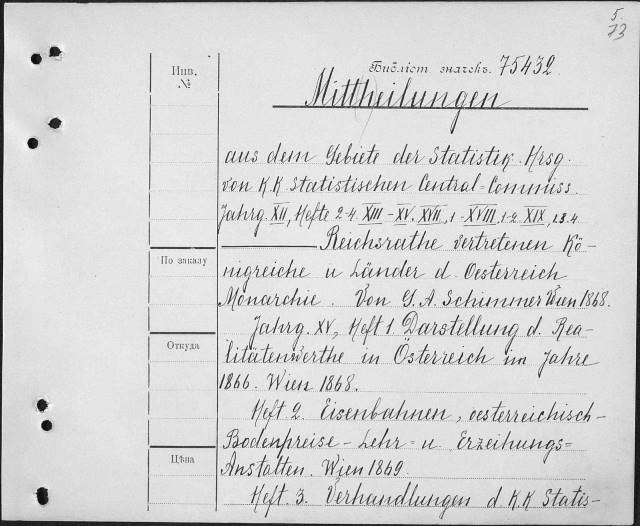 5.
73
Инв.
№
Библіот. значекъ. 75432
Mittheilungen
aus dem Gebiete der Statistik. Hrsg.
von K.K. Statistischen Central=Commiss.
Jahrg. XII, Hefte 2-4. XIII-XV. XVII, 1-XVIII, 1-2. XIX, 1.3.4
Reichsrathe vertretenen Kö-
По заказу
nigreiche u Länder d. Oesterreich
Monarchie. Von G. A. Schimmer Wien 1868.
Jahrg. XV, Heft 1. Darstellung d. Rea-
Откуда
litätenwerthe in Österreich im Jahre
1866. Wien 1868.
Heft 2. Eisenbahnen, oesterreichisch-
Bodenpreise-Lehr= u. Erzeihungs=
Цѣна
Anstalten. Wien 1869.
Heft. 3. Verhandlungen d. K.K Statis-